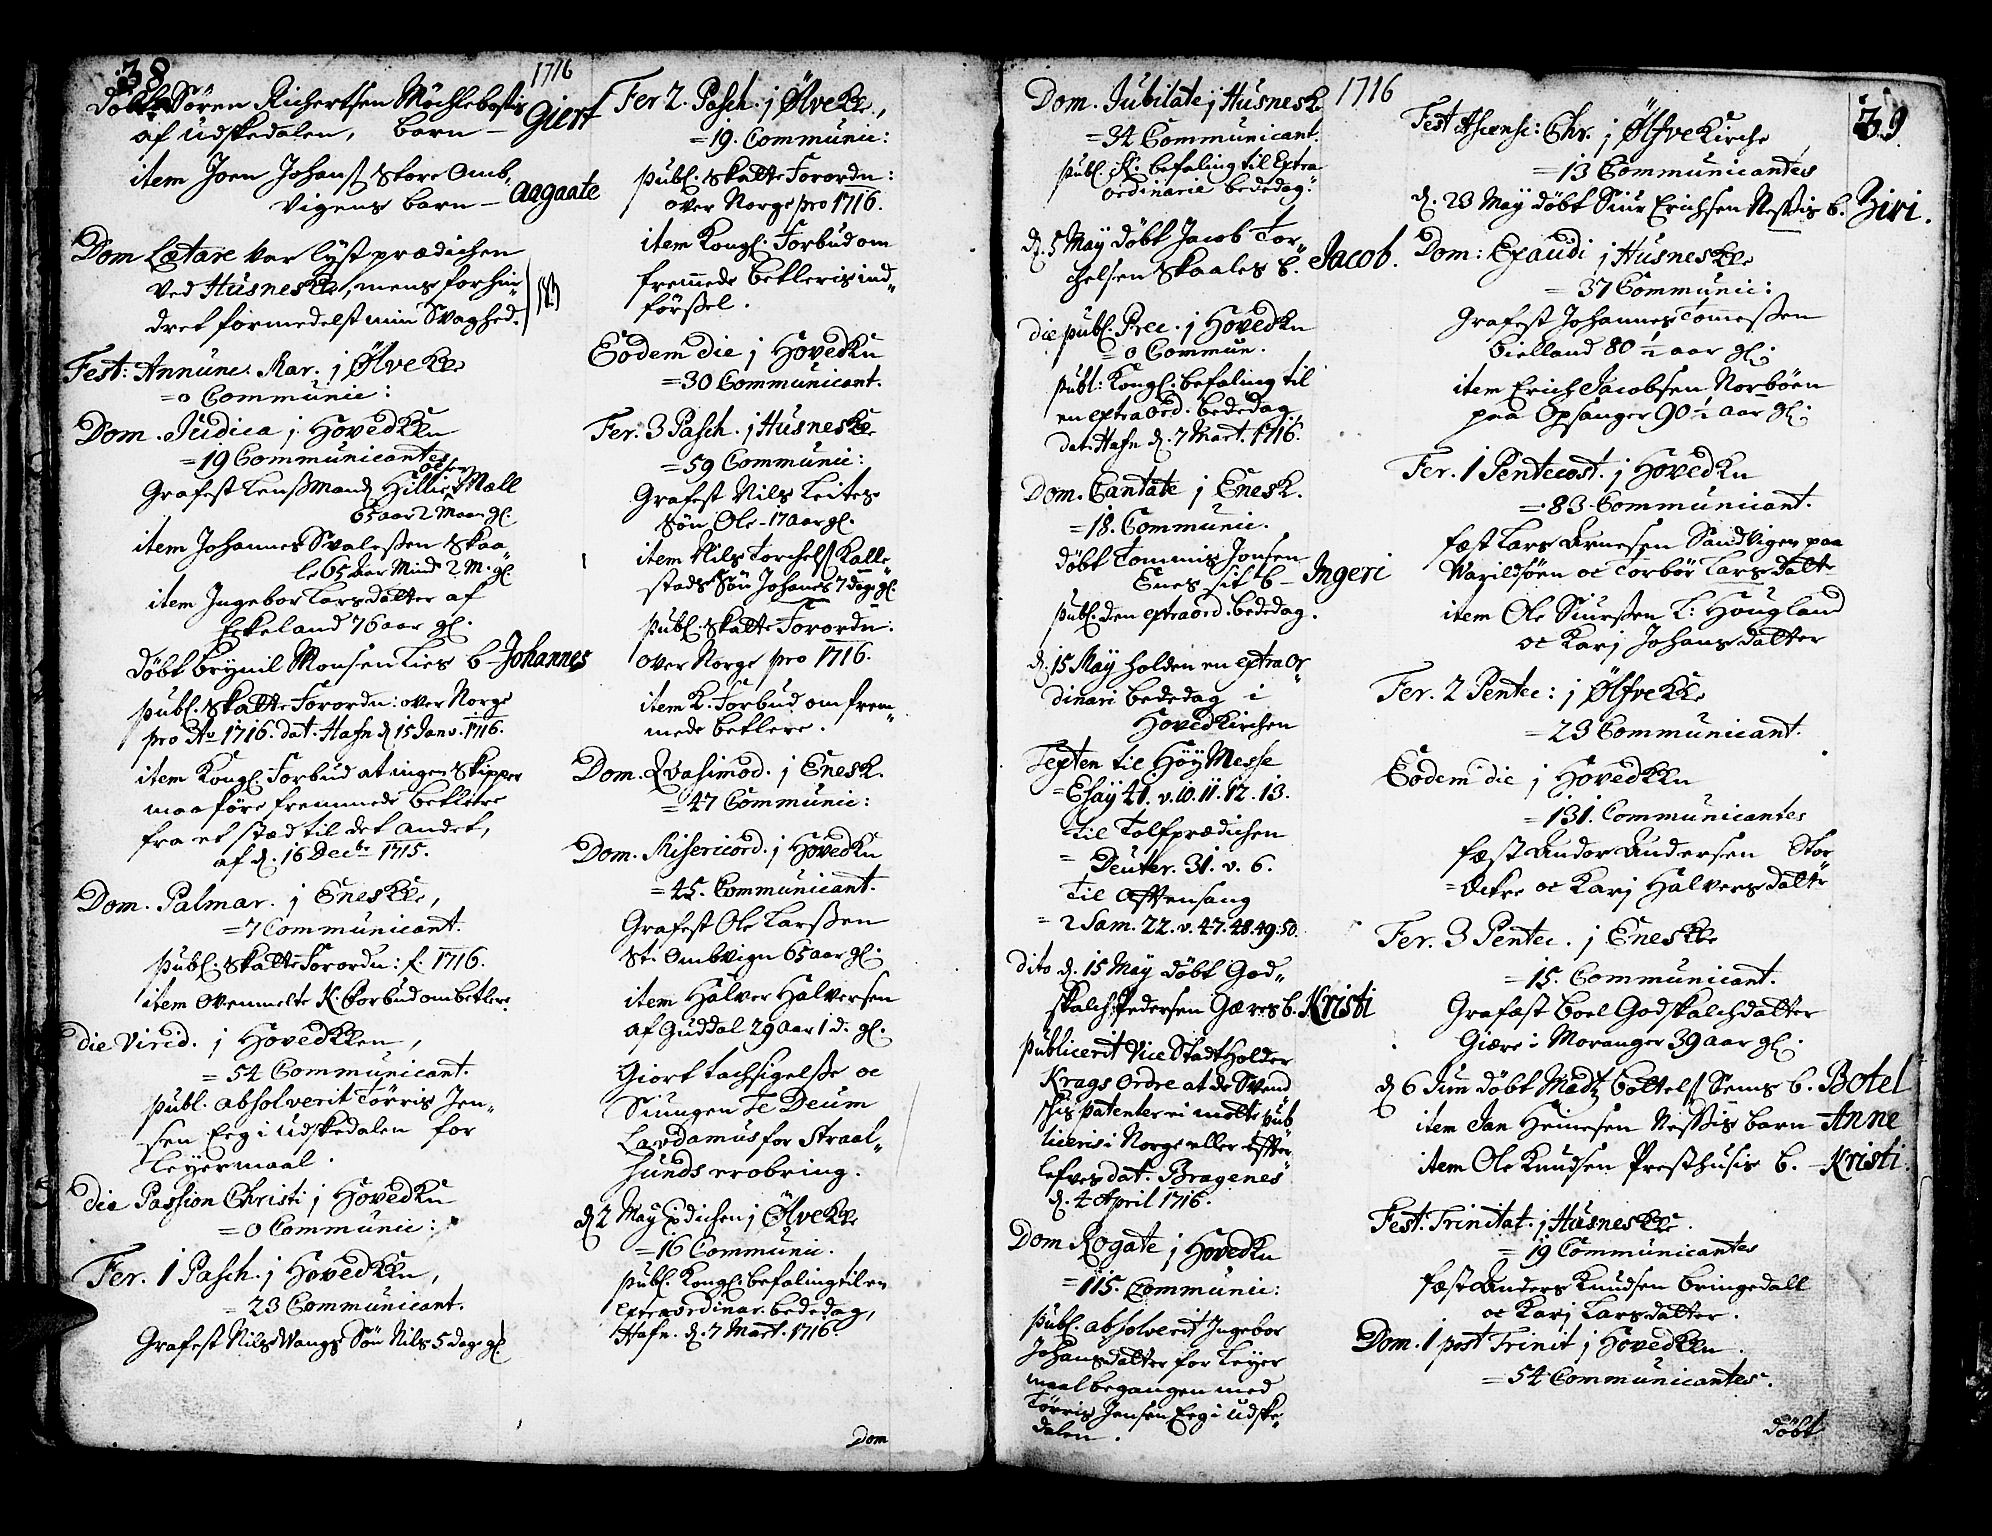 38
1716
Döbt Sören Richertsen Möchlebostis
af Udskedalen, barn – Giert
item Joen Johans Store Omb,
Vigens barn – Aagaate
Dom Lætare var lyst prædichen
ved Husnes K., mens forhin,
dret formedelst min Svaghed.
Fest: Annunc. Mar. j Ölve K
= 0 Communic:
Dom. Judica j Hoved Kkn
= 19 Communicantes
Grafest Lenssmand Hillic Olsen Mæll
65 aar 2 Maan: gl.
item Johannes Svalessen Skaa,
le 65 aar Mind 2 M. gl
item Ingebor Larsdatter af
Eckeland 76 aar gl.
döbt Brynil Monsen Lies b – Johannes
publ. Skatte Forordn: over Norge
pro Ao 1716. dat. Hafn d. 15 Janv. 1716.
item Kongl. Forbud at ingen Skipper
maa före fremmede betlere
fra et stæd til det andet,
af d. 16 Decbr 1715.
Dom. Palmar. j Enes Kk,
= 7 Communicant.
publ. Skatte Forordn: f. 1716.
item Ovenmelte K. Forbud om betlere.
die Virid. j Hoved Kken,
= 54 Communicant.
publ. absolverit Törris Jen,
sen Eeg i Udskedalen for
Leyermaal.
die Passion Christi j Hoved Kn
= 0 Communic:
Fer. 1 Pasch. j Hoved Kkn,
= 23 Communicant.
Grafest Nils Wangs Sön Nils 5 dage gl.
Fer 2. Pasch. j Ölve Kk,
= 19. Communic:
publ. Skatte Forordn:
over Norge pro 1716.
item Kongl. Forbud om
fremmede betleris ind,
förssel.
Eodem die j Hoved Kn
= 30 Communicant.
Fer. 3 Pasch. j Husnes Kk
= 59 Communic:
Grafest Nils Leites
Sön Ole – 17 aar gl.
item Nils Torchels Kalle,
stads Sön Johanes 7 dage gl.
publ. Skatte Forordn:
over Norge pro 1716.
item K. Forbud om frem,
mede betlere.
Dom. Qvasimod. j Enes K.
= 47 Communic:
Dom. Misericord. j Hoved Kn
= 45. Communicant.
Grafest Ole Larssen
St. Ombvign 65 aar gl.
item Halver Halversen
af Guddal 29 aar 1 d. gl.
Giort tachsigelsse oc
Siungen Te Deum
Lavdamus for Straal,
sunds erobring.
d. 2 May prædichen j Ölve Kk
= 16 Communic.
publ. Kongl. befaling til en
Extraordinar. bededag,
Hafn. d. 7 Mart. 1716.
Dom
Dom. Jubilate j Husnes K.
1716
= 34 Communicant.
publ. K. befaling til Extra
ordinarie bededag.
d. 5 May döbt Jacob Tor,
chelsen Skaales b. Jacob.
die publ. Prec. j Hoved Kn
= 0 Commun.
publ: Kongl. befaling til
en extraord. bededag,
dat. Hafn d. 7 Mart. 1716.
Dom. Cantate j Enes K.
= 18. Communic.
döbt Tommis Jonsen
Enes sit b – Ingeri
publ. den extraord. bededag.
d. 15 May holden en extraor,
dinari bededag i
Hoved Kirchen
Texten til Höy Messe
= Esay 41. v. 10. 11. 12. 13.
til Tolfprædichen
= Deuter. 31. v. 6.
Til Aftensang
= 2 Sam. 22. v. 47. 48. 49. 50.
dito d. 15 May döbt God,
skalch Pedersen Gæres b. Kristi
publicerit Vice Stadt Holder
Krags Ordre at de Svend
skis patenter ei motte pub
liceris i Norge eller eftter
lefves dat. Bragenes
d. 4 April 1716.
Dom Rogate j Hoved Kn
= 115. Communic:
publ. absolverit Ingebor
Johansdatter for Leyer
maal begangen med
Törris Jensen Eeg i Udske,
dalen.
39
Fest Ascensi: Chr. j Ölfve Kirche
= 13 Communicantes
d. 23 May döbt Siur Erichsen Nessis b. Ziri.
Dom: Exaudi j Husnes Kk
= 37 Communic:
Grafest Johannes Tomessen
bielland 80 ½ aar gl.
item Erich Jacobsen Norböen
paa Opsanger 90 ½ aar gl.
Fer. 1 Pentecost. j Hoved Kn
= 83 Communicant.
fæst Lars Arnesen Sandvigen paa
Varildsöen oc Torbör Larsdatt
item Ole Siurssen L: Hougland
oc Karj Johansdatter
Fer. 2 Pentec: j Ölfve Kk
= 23 Communicant.
Eodem die j Hoved Kkn
= 131. Communicantes
fæst Andor Andersen Stor
Ache oc Karj Halversdatt
Fer. 3 Pentec. j Enes Kk
= 15. Communicant.
Grafæst Boel Godskalchdatter
Giære i Moranger 39 aar gl.
d. 6 Jun döbt Madz Bottels Sems b. Botel
item Jan Heinesen Nessis barn Anne
item Ole Knudsen Presthusis b. – Kristi.
Fest. Trinitat. j Husnes Kk.
= 19 Communicantes
fæst Anders Knudsen Bringedall
oc Karj Larsdatter.
Dom. 1 post Trinit j Hoved Kkn.
= 54 Communicantes.
döbt